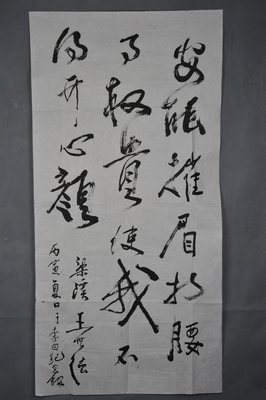 安能摧眉折腰
事权貴使我不
得开心顏
梁溪王世
丙寅夏日于李白纪念馆